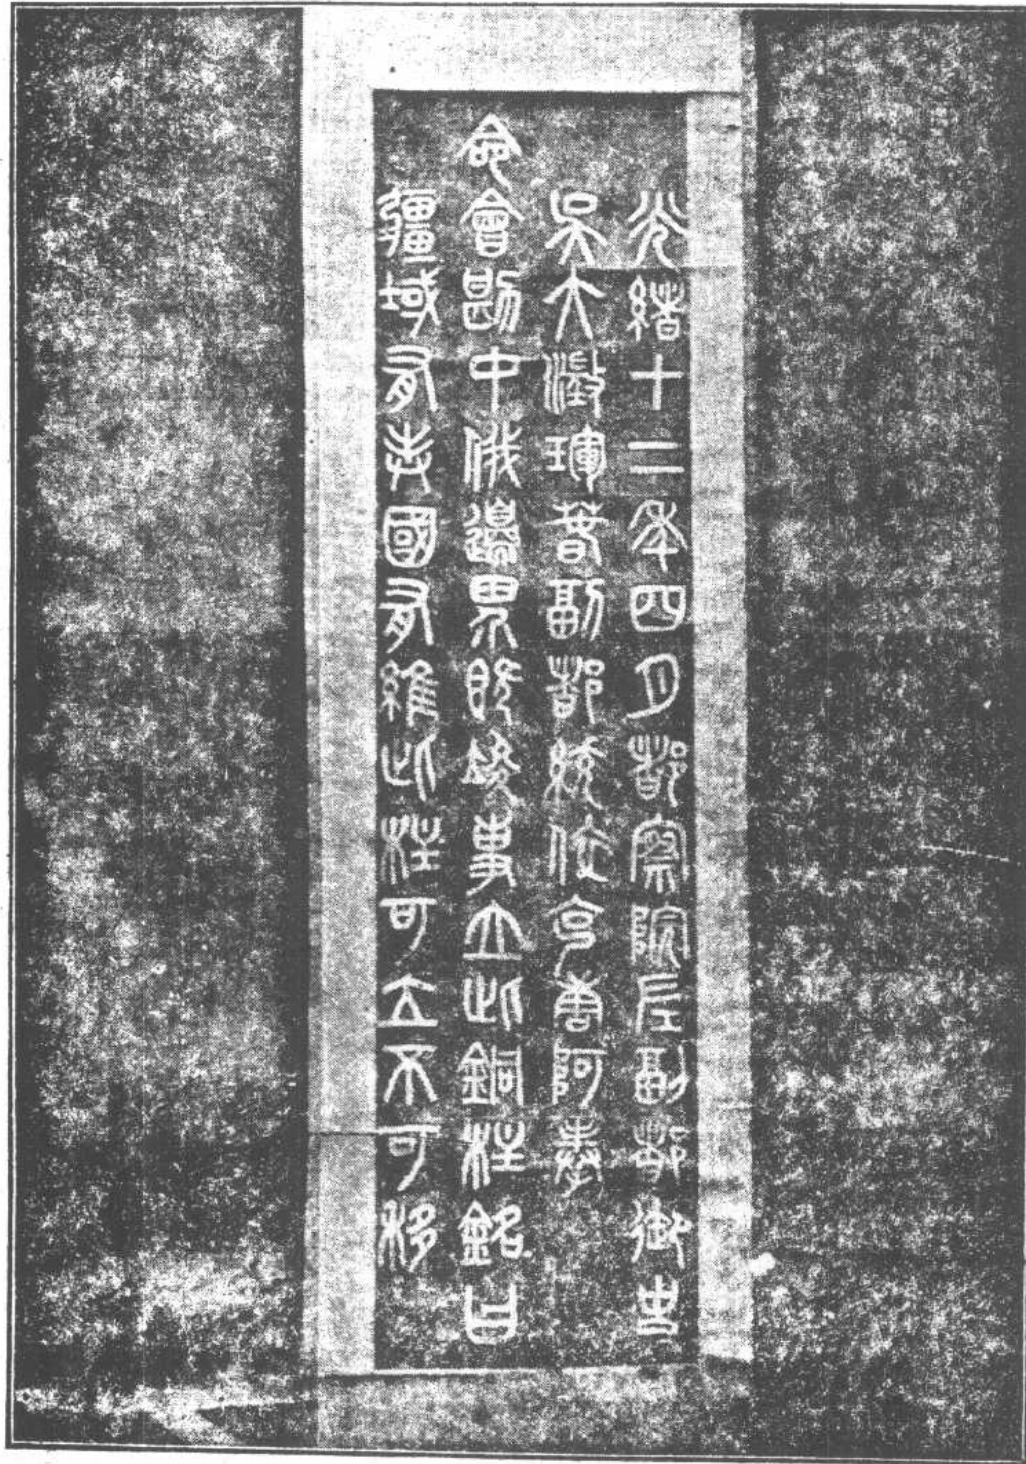 光緒十二年四月都察院左副都御史
吳大澂琿春副都統依克唐阿奉
命會勘中俄邊界既竣事立此銅柱銘曰
疆域有表國有維此柱可立不可移